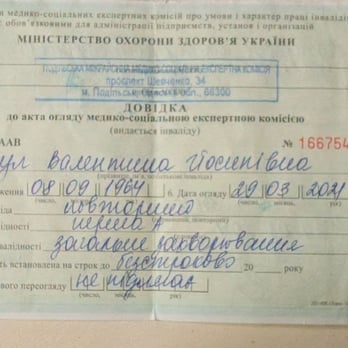 и медико-соціальних експертних комісій про умови і характер праці інвалідів
є обов'язковими для адміністрації підприємств, установ і організацій
МІНІСТЕРСТВО ОХОРОНИ ЗДОРОВ'Я УКРАЇНИ
ПОДІЛЬСЬКА МІЖРАЙОННА МЕДИКО-СОЦІАЛЬНА ЕКСПЕРТНА КОМІСІЯ
проспект Шевченко, 34
м. Подільськ, Одеської обл., 66300
ДОВІДКА
до акта огляду медико-соціальною експертною комісією
(видається інваліду)
ААВ № 166754
Валентина Йосипівна
(прізвище, ім'я, по батькові інваліда)
ження 08 09 1964 6. Дата огляду 29 03 2021
(число, місяць, рік) (число, місяць,
яду повторний
повторний)
ідності перша А
алідності загальне захворювання
ть встановлена на строк до безстроково 20 року
(число, місяць)
ового переогляду не підлягає
(число, місяць, рік)